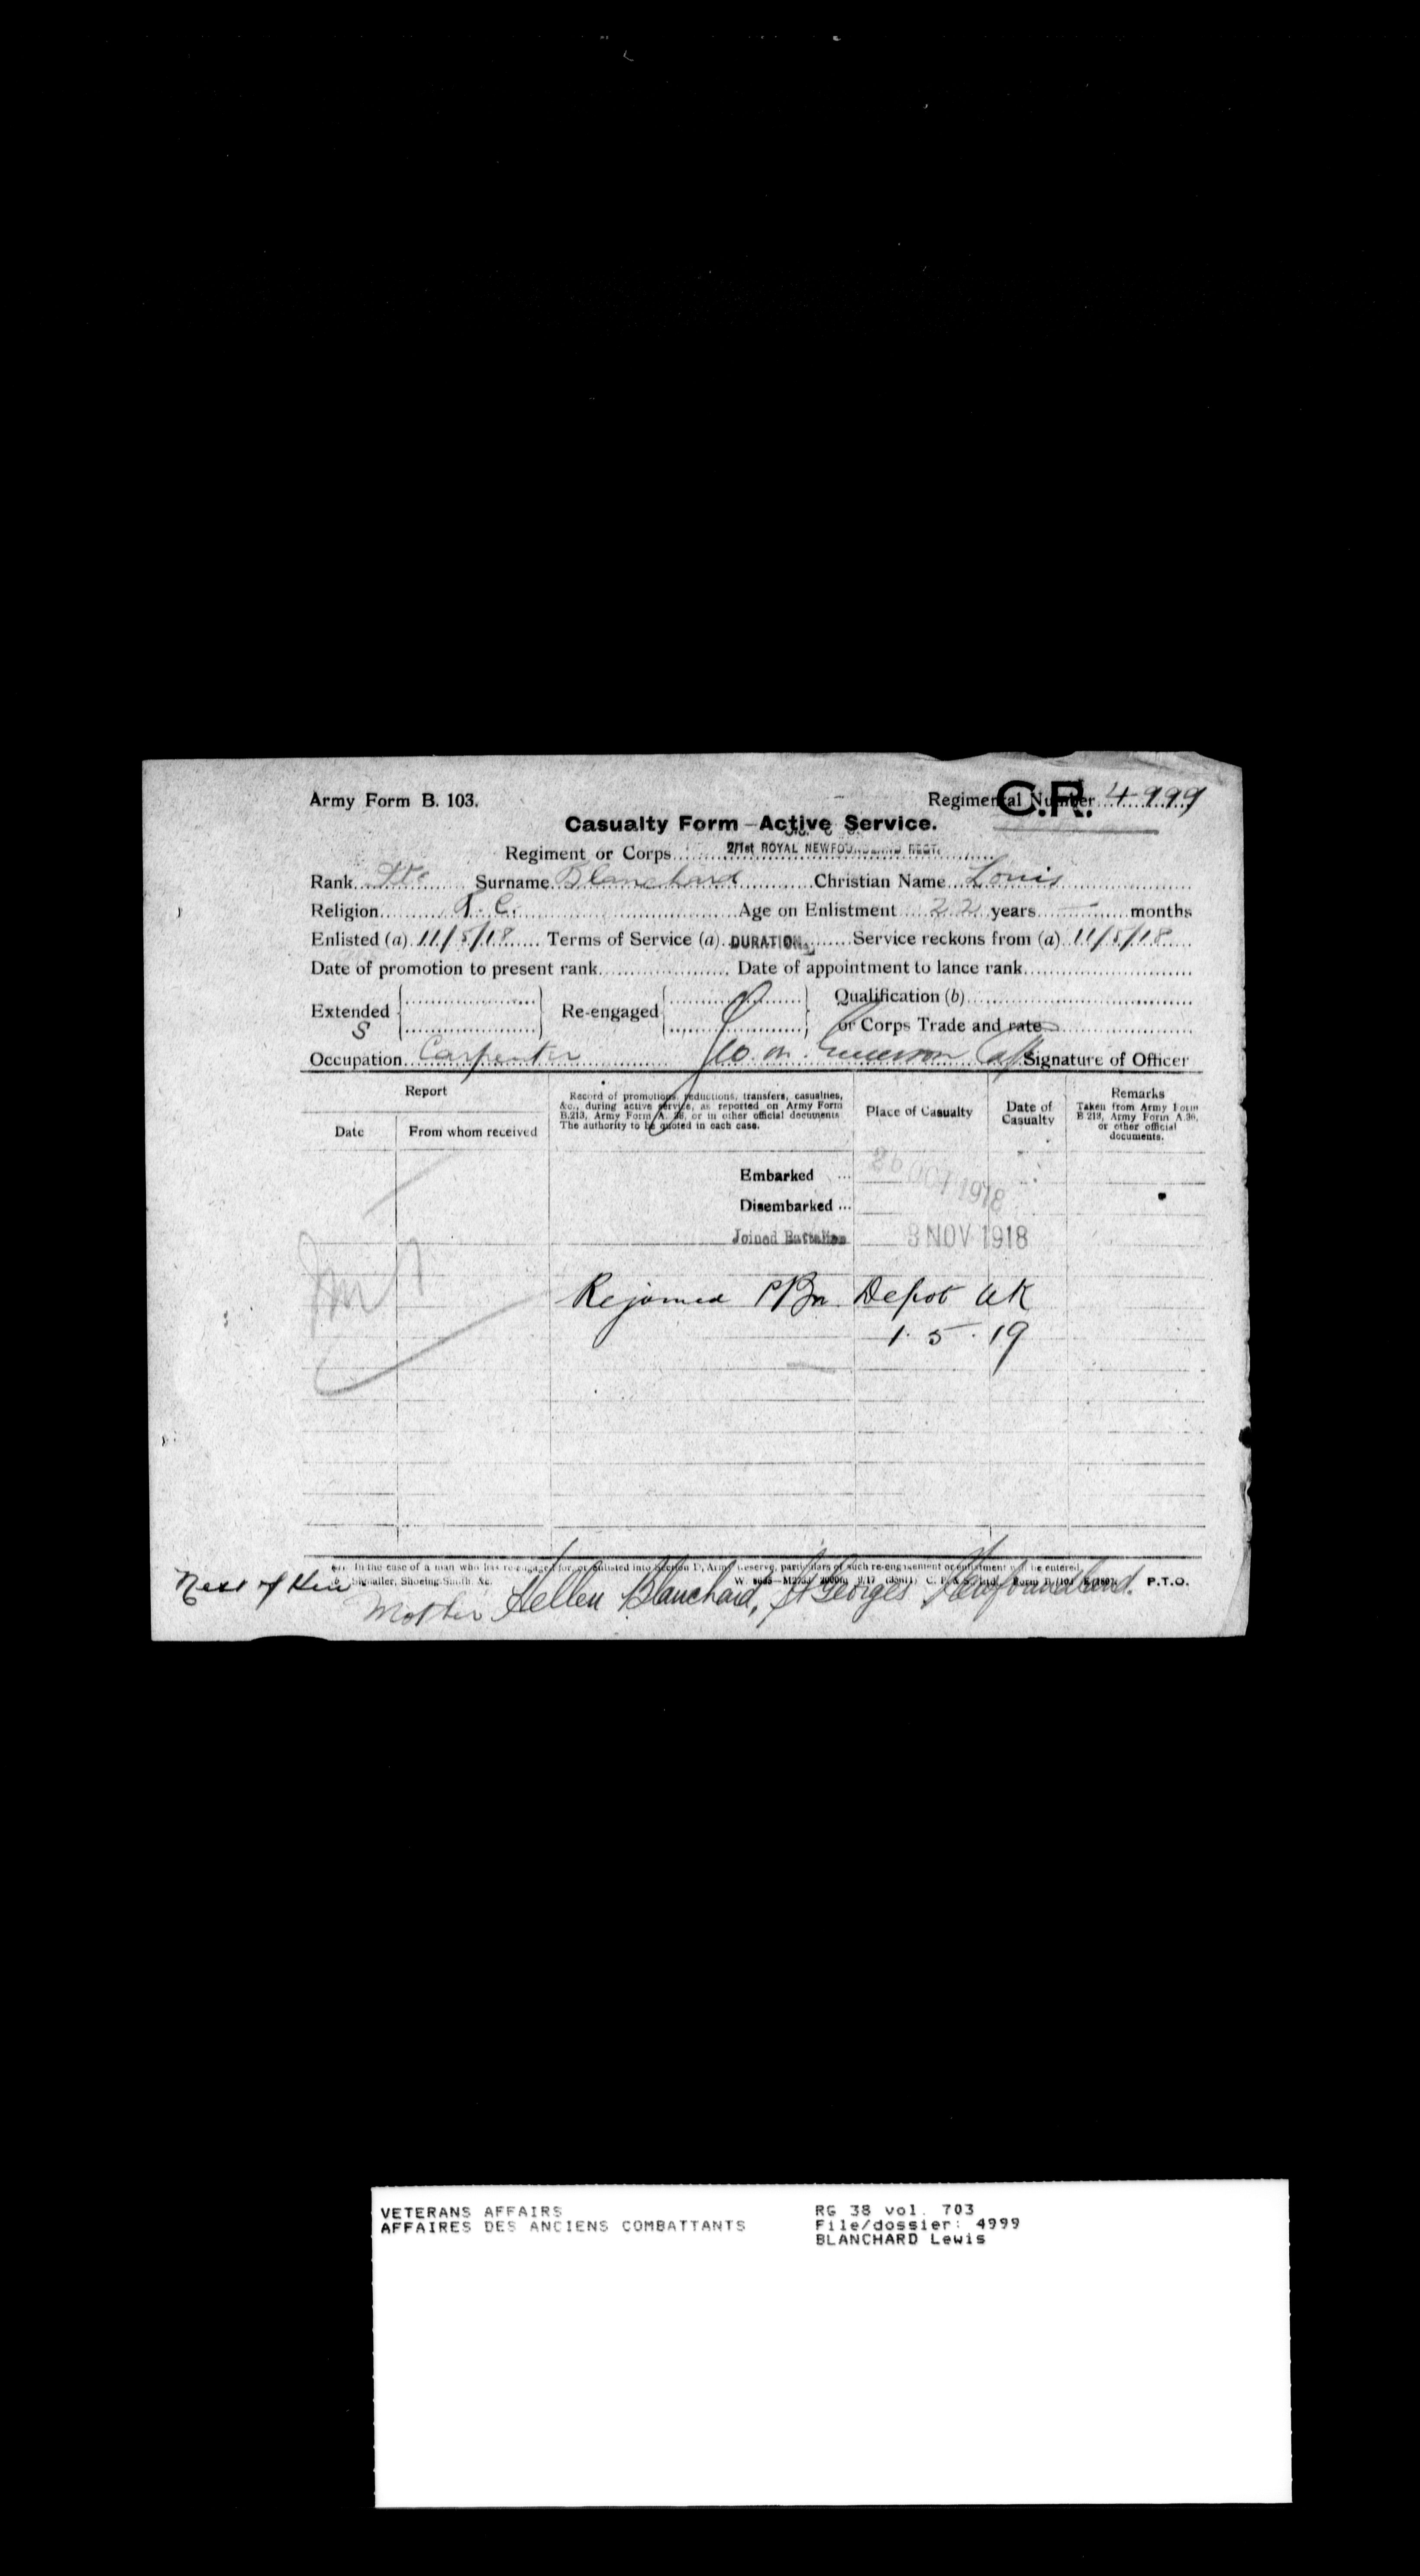 Army Form B. 103.
Regimental Number 4999
C.R.
Casualty Form—Active Service.
Regiment or Corps 2/1st ROYAL NEWFOUNDLAND REGT.
Rank Pte Surname Blanchard Christian Name Louis
Religion R.C. Age on Enlistment 22 years — months
Enlisted (a) 11/5/18 Terms of Service (a) DURATION Service reckons from (a) 11/5/18
Date of promotion to present rank Date of appointment to lance rank
Extended Re-engaged Qualification (b)
S or Corps Trade and rate
Occupation Carpenter Emerson Capt Signature of Officer
Report
Date From whom received
Record of promotions, reductions, transfers, casualties,
&c., during active service, as reported on Army Form
B.213, Army Form A. 36, or in other official documents
The authority to be quoted in each case.
Place of Casualty
Date of
Casualty
Remarks
Taken from Army Form
B 213, Army Form A.36,
or other official
documents.
Embarked ... 26 OCT 1918
Disembarked ...
Joined Battalion 3 NOV 1918
Rejoined Bn Depot UK
1.5.19
(a) In the case of a man who has re-engaged for, or enlisted into Section D, Army Reserve, particulars of such re-engagement or enlistment will be entered.
Signaller, Shoeing-Smith, &c.
P.T.O.
Next of Kin
Mother Hellen Blanchard, St Georges Newfoundland.
VETERANS AFFAIRS
AFFAIRES DES ANCIENS COMBATTANTS
RG 38 vol. 703
File/dossier: 4999
BLANCHARD Lewis